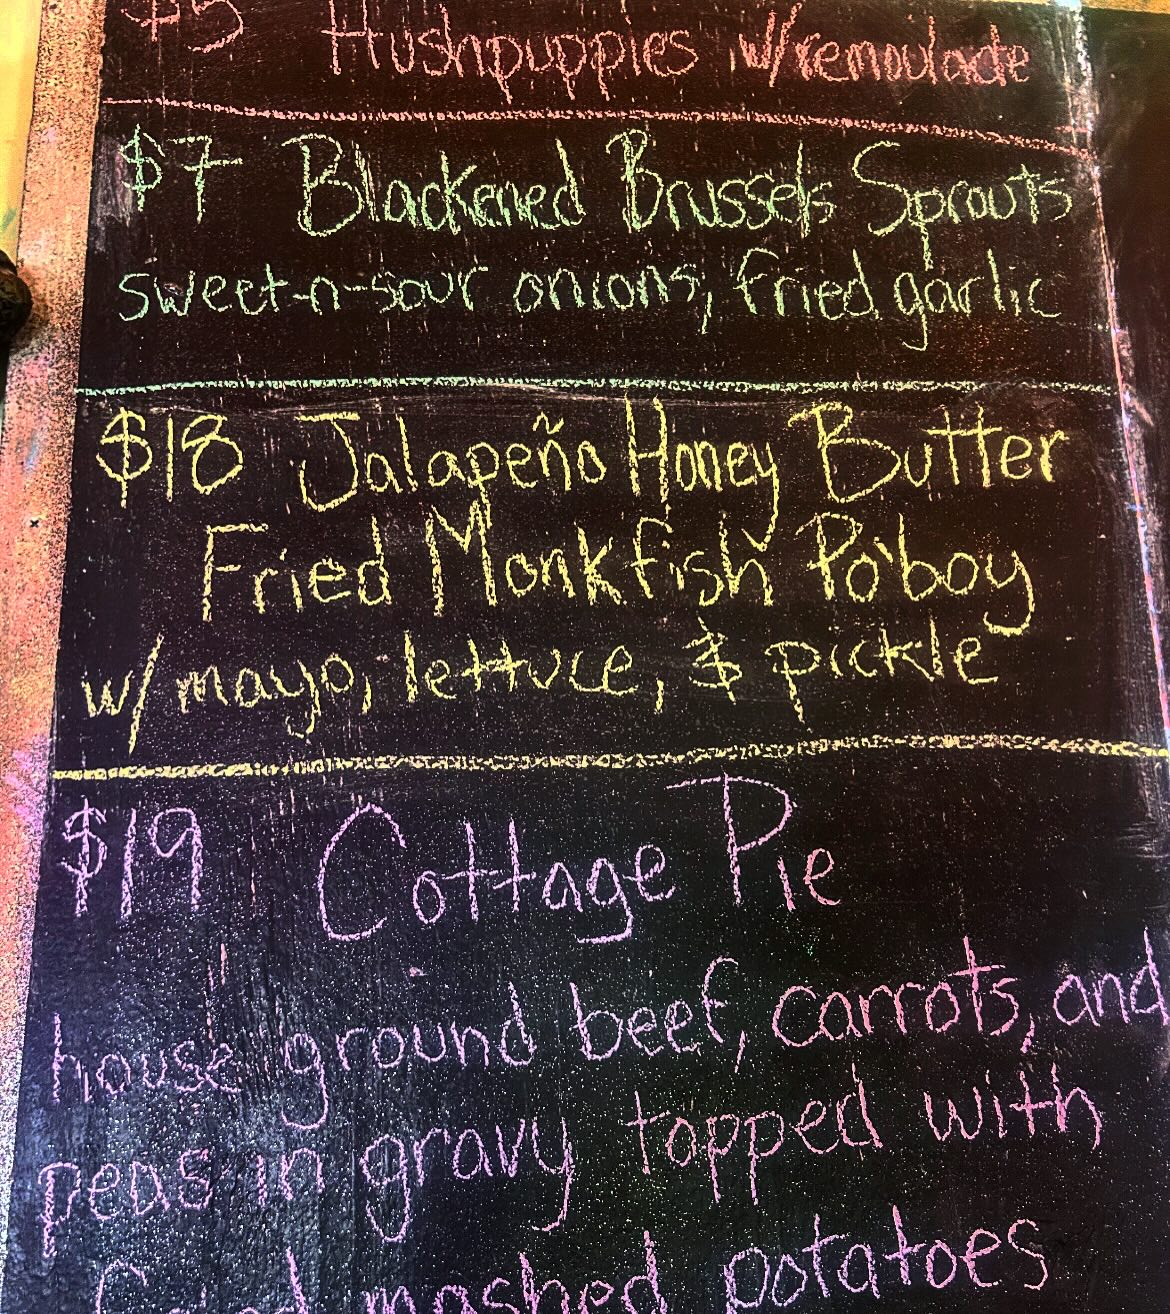 $5 Hushpuppies w/remoulade
$7 Blackened Brussels Sprouts
sweet-n-sour onions, fried garlic
$18 Jalapeño Honey Butter
Fried Monkfish Po'boy
w/ mayo, lettuce, & pickle
$19 Cottage Pie
house ground beef, carrots, and
peas in gravy topped with
mashed potatoes